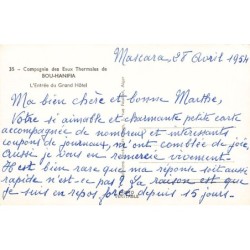 Mascara, 28 Avril 1954
35 - Compagnie des Eaux Thermales de
BOU-HANIFIA
L'Entrée du Grand Hôtel
Ma bien chère et bonne Marthe,
Votre si aimable et charmante petite carte
accompagnée de nombreux et intéressants
coupons de journaux, m'ont comblée de joie,
Aussi je vous en remercie vivement.
Il est bien rare que ma réponse soit aussi
rapide n'est-ce pas? La raison est que
je suis en repos forcé depuis 15 jours-